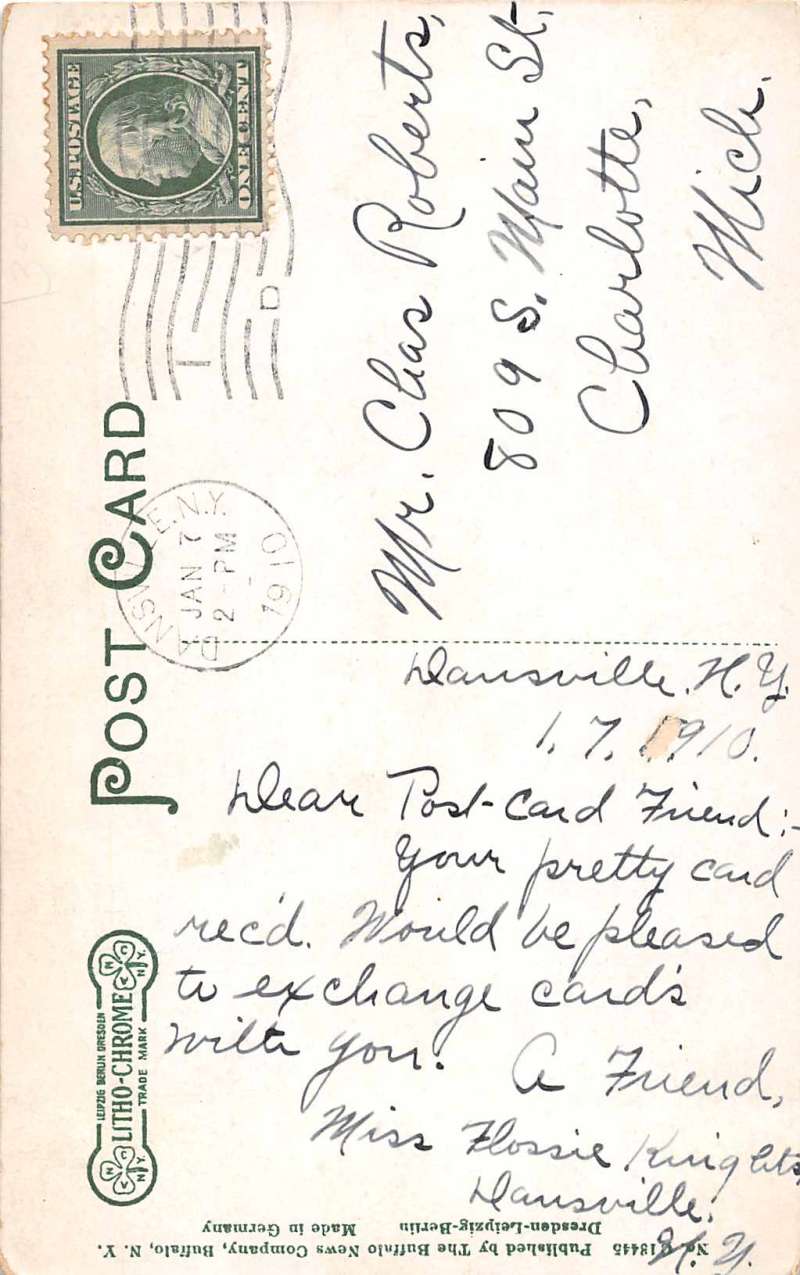 POST CARD
U.S. POSTAGE
ONE CENT
DANSVILLE. N.Y.
JAN 7
2 - PM
1910
1
D
Mr. Chas Roberts,
809 S. Main St,
Charlotte,
Mich.
Dansville. N. Y.
1. 7. 1910.
Dear Post-Card Friend:-
Your pretty card
rec'd. Would be pleased
to exchange card's
with you. A Friend,
Miss Flossie Knights,
Dansville.
N. Y.
LEIPZIG BERLIN DRESDEN
LITHO-CHROME
TRADE MARK
N C N.Y.
N C N.Y.
No. 18445 Published by The Buffalo News Company, Buffalo, N. Y.
Dresden-Leipzig-Berlin Made in Germany